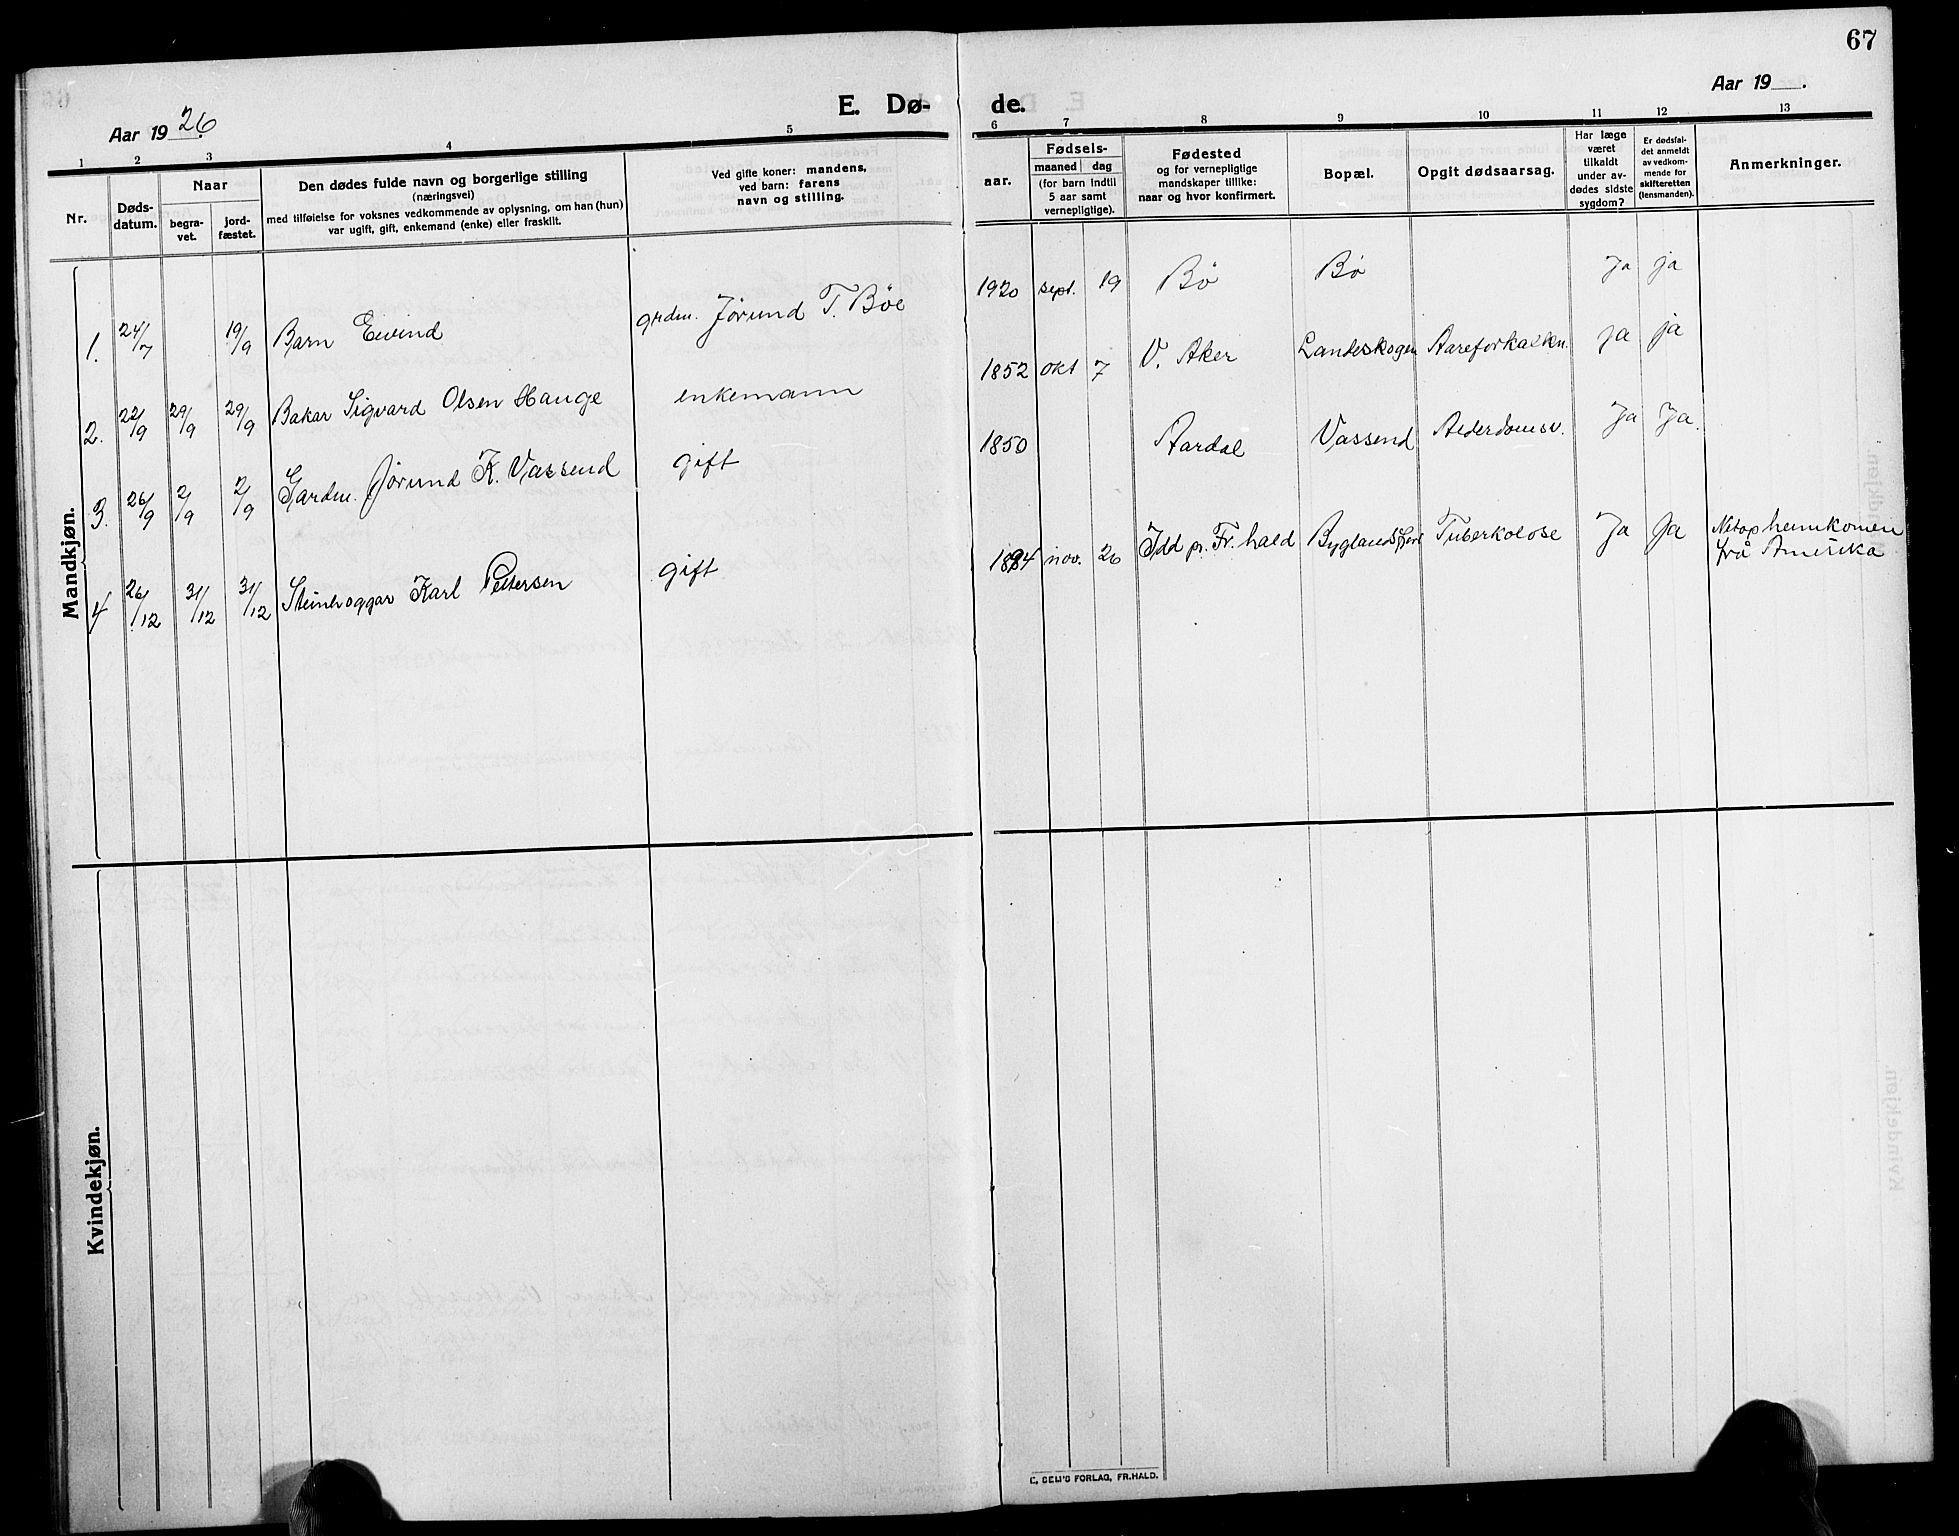 67
Aar 1926
E. Dø-
de.
Aar 19 .
1 2 3 4 5
6 7 8 9 10 11 12 13
Nr.
Døds-
datum.
Naar
begra-
vet.
jord-
fæstet.
Den dødes fulde navn og borgerlige stilling
(næringsvei)
med tilføielse for voksnes vedkommende av oplysning, om han (hun)
var ugift, gift, enkemand (enke) eller fraskilt.
Ved gifte koner: mandens,
ved barn: farens
navn og stilling.
aar.
Fødsels-
maaned dag
(for barn indtil
5 aar samt
vernepligtige).
Fødested
og for vernepligtige
mandskaper tillike:
naar og hvor konfirmert.
Bopæl.
Opgit dødsaarsag.
Har læge
været
tilkaldt
under av-
dødes sidste
sygdom?
Er dødsfal-
det anmeldt
av vedkom-
mende for
skifteretten
(lensmanden).
Anmerkninger.
Mandkjøn.
1. 24/7 19/9 Barn Eivind grdm. Jørund T. Bøe 1920 sept. 19 Bø Bø Ja ja
2. 22/9 29/9 29/9 Bakar Sigvard Olsen Hauge enkemann 1852 okt 7 V. Aker Landeskogen Aareforkalkn. Ja ja
3. 26/9 2/9 2/9 Gardm. Jørund K. Vassend gift 1850 Aardal Vassend Alderdomsv. Ja Ja.
4 26/12 31/12 31/12 Steinhoggar Karl Pettersen gift 1884 nov. 26 Idd pr. Fr.hald Byglandsfjord Tuberkolose Ja Ja Netop heimkomen
frå Amerika
Kvindekjøn.
E. SEM'S FORLAG, FR.HALD.